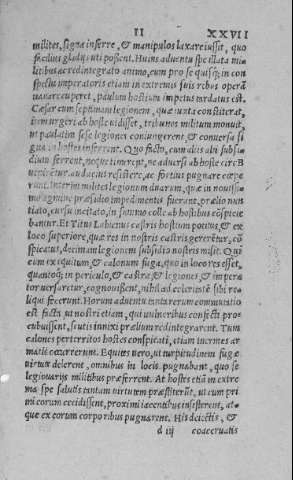 II XXVII
milites, signa inferre, & manipulos laxare iussit, quo
facilius gladijs uti possent. Huius aduentu spe illata mi
litibus ac redintegrato animo, cum pro se quisq; in con
spectu imperatoris etiam in extremis suis rebus operã
nauare cuperet, paulum hostium impetus tardatus est.
Cæsar cum septimam legionem, quæ iuxta constiterat,
item urgeri ab hoste uidisset, tribunos militum monuit,
ut paulatim sese legiones coniungerent, & conuersa si
gna in hostes inferrent. Quo facto, cum alius alij subsi
dium ferrent, neque timerent, ne aduersi ab hoste circũ
uenirentur, audacius resistere, ac fortius pugnare cœpe
runt. Interim milites legionum duarum, quæ in nouissi
mo agmine præsidio impedimentis fuerant, prælio nun
tiato, cursu incitato, in summo colle ab hostibus cõspicie
bantur. Et Titus Labienus castris hostium potitus, & ex
loco superiore, quæ res in nostris castris gereretur, cõ
spicatus, decimam legionem subsidio nostris misit. Qui
cum ex equitum, & calonum fuga, quo in loco res esset,
quantoq; in periculo, & castra, & legiones, & impera
tor uersaretur, cognouissent, nihil ad celeritatẽ sibi re-
liqui fecerunt. Horum aduentu tanta rerum commutatio
est facta, ut nostri etiam, qui uulneribus confecti pro-
cubuissent, scutis innixi prælium redintegrarent. Tum
calones perterritos hostes conspicati, etiam inermes ar
matis occurrerunt. Equites uero, ut turpitudinem fugæ
uirtute delerent, omnibus in locis pugnabant, quo se
legionarijs militibus præferrent. At hostes etiã in extre
ma spe salutis tantam uirtutem præstiterũt, ut cum pri
mi eorum cecidissent, proximi iacentibus insisterent, at-
que ex eorum corporibus pugnarent. His deiectis, &
d iij coaceruatis